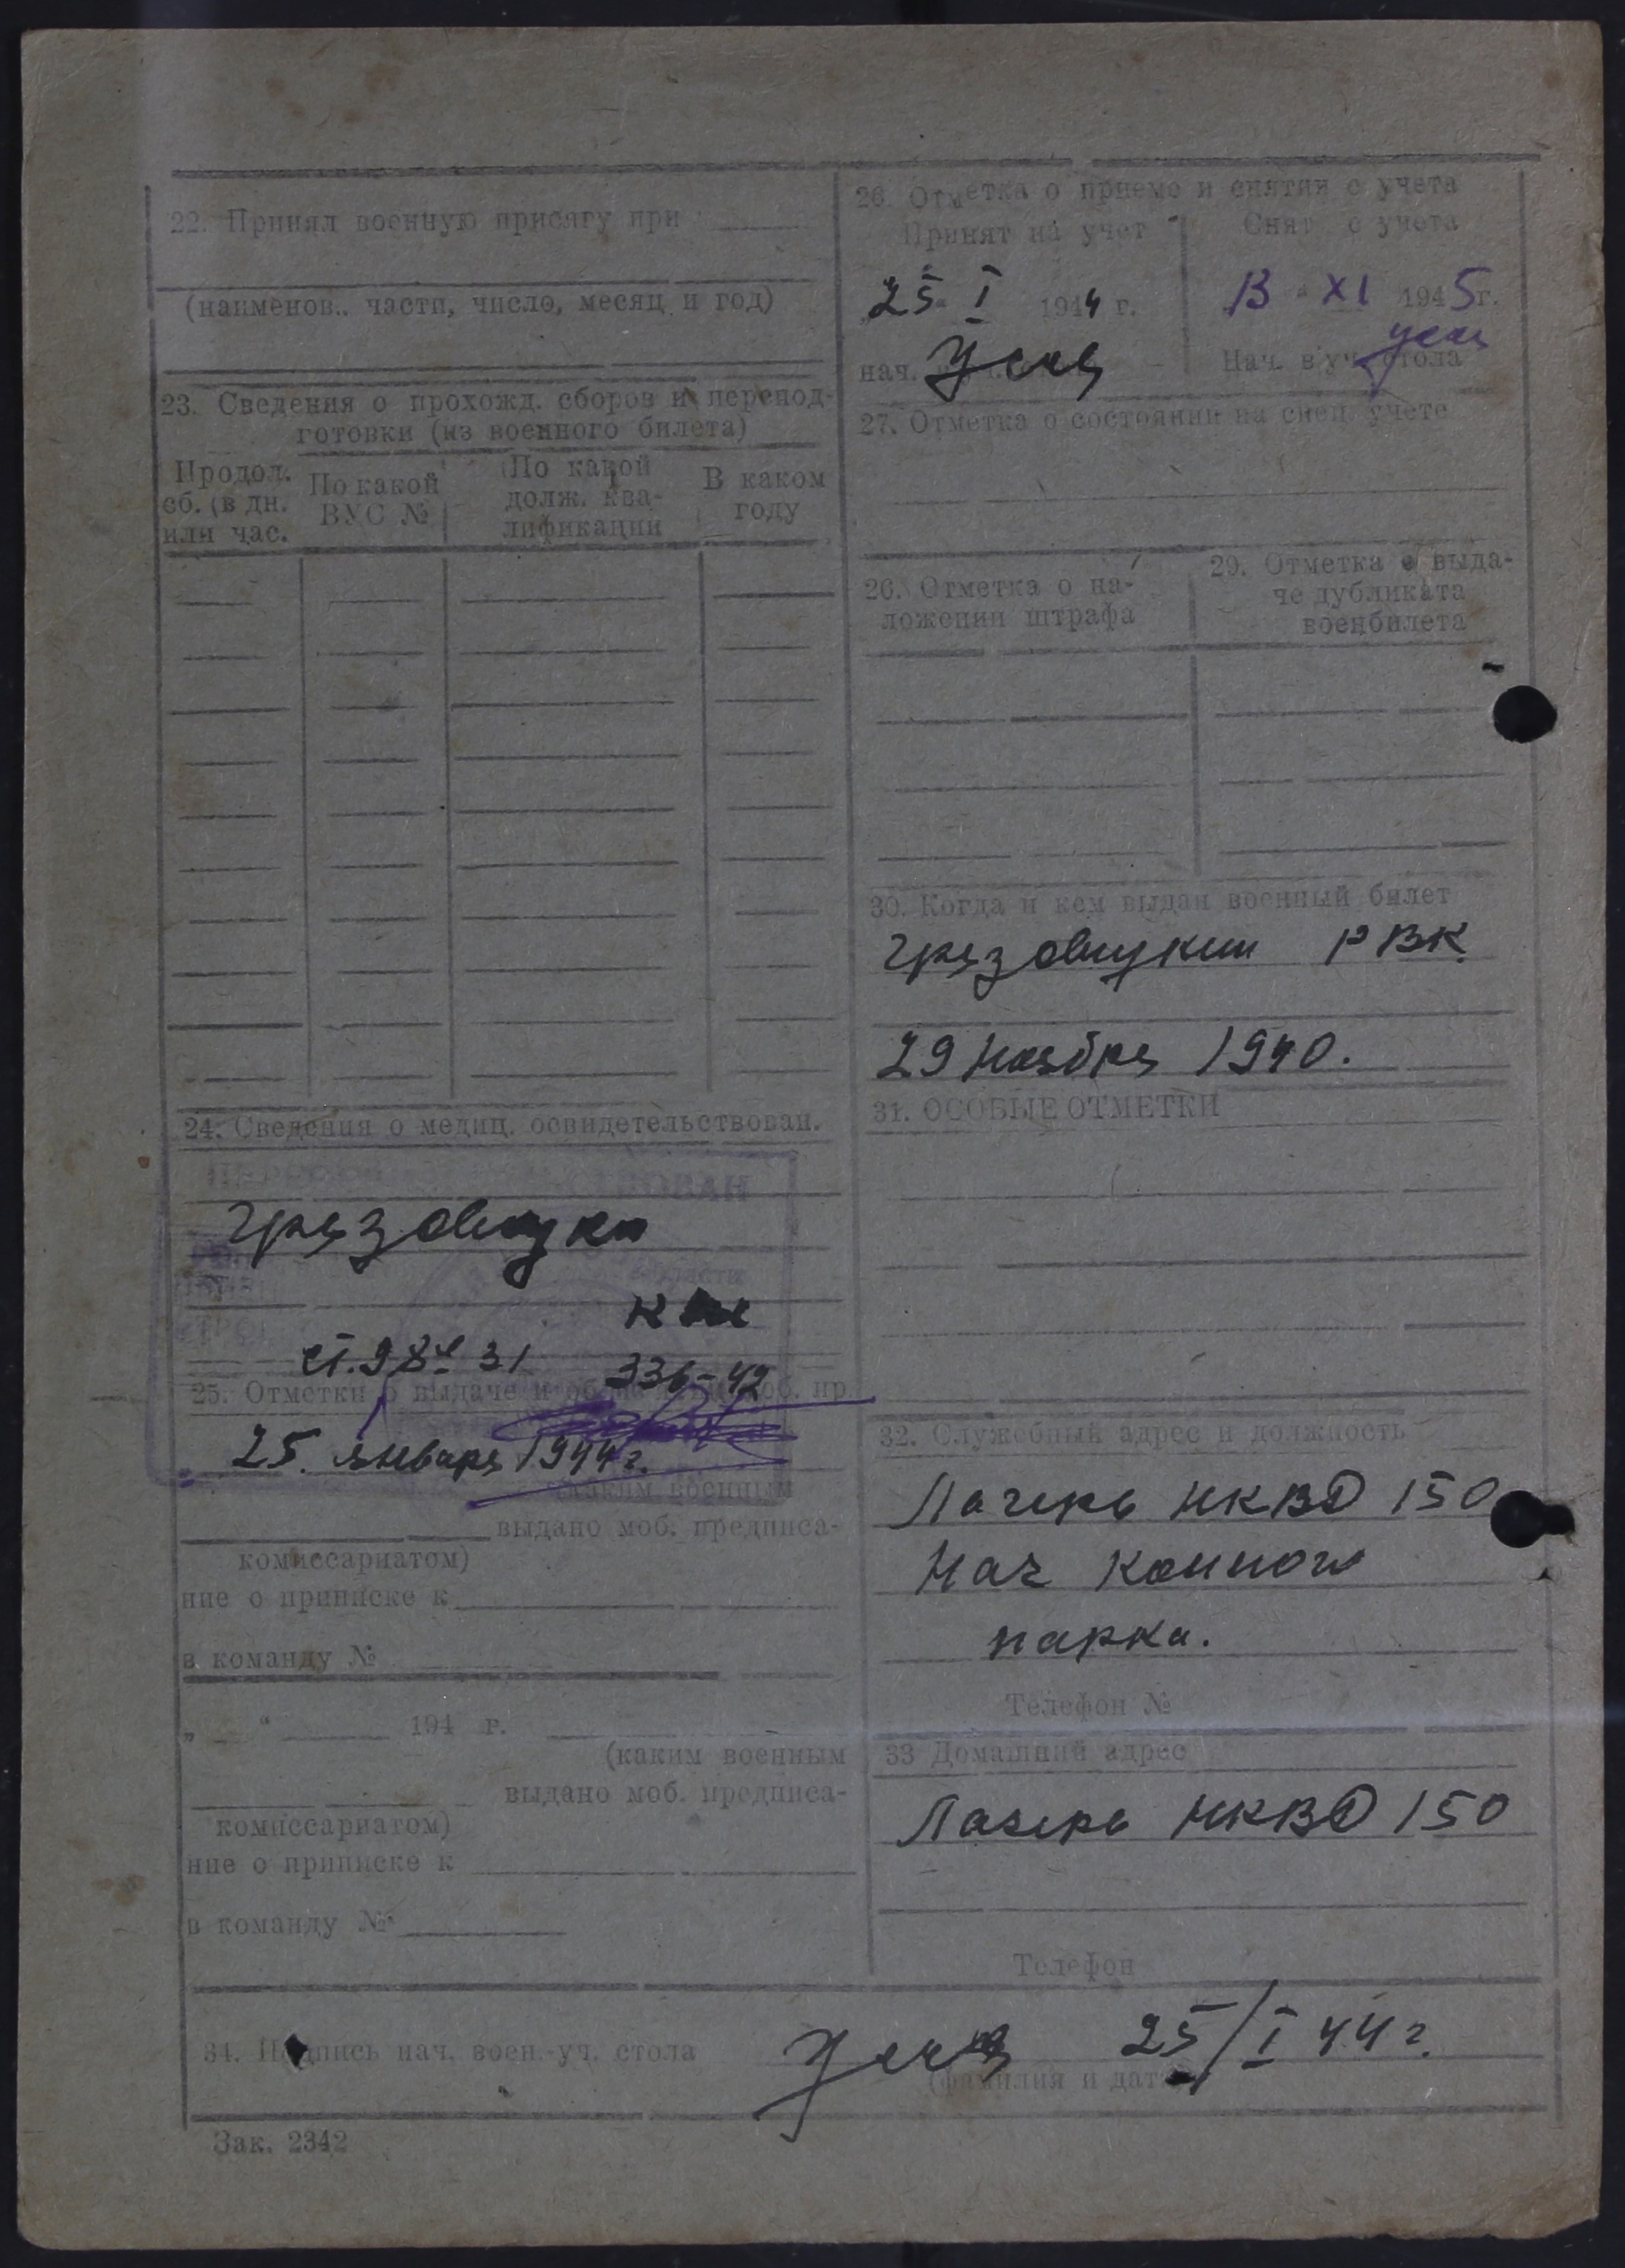 22. Принял военную присягу при
(наименов.. части, число, месяц и год)
23. Сведения о прохожд. сборов и перепод-
готовки (из военного билета)
Продол. сб. (в дн. или час.
По какой ВУС №
По какой долж. ква-лификации
В каком году
24. Сведения о медиц. освидетельствован.
ст. 9
31
336-42
25. Отметки о выдаче
моб. пр.
25. января 1944 г.
каким военным
выдано моб. предписа-
комиссариатом)
ние о приписке к
в команду №
„ “ 194 г.
(каким военным
выдано моб. предписа-
комиссариатом)
ние о приписке к
в команду №
26. Отметка о приеме и снятии с учета
Принят на учет
Снят с учета
25 I 1944 г.
13 XI 1945 г.
нач.
Нач. в/уч. стола
27. Отметка о состоянии на спец. учете
26. Отметка о на-
ложении штрафа
29. Отметка о выда-
че дубликата
военбилета
30. Когда и кем выдан военный билет
РВК.
29 ноября 1940.
31. ОСОБЫЕ ОТМЕТКИ
32. Служебный адрес и должность
Лагерь НКВД 150
Нач конного
парка.
Телефон №
33 Домашний адрес
Лагерь НКВД 150
Телефон
34. Подпись нач. воен.-уч. стола
25/I 44 г.
(фамилия и дата)
Зак. 2342